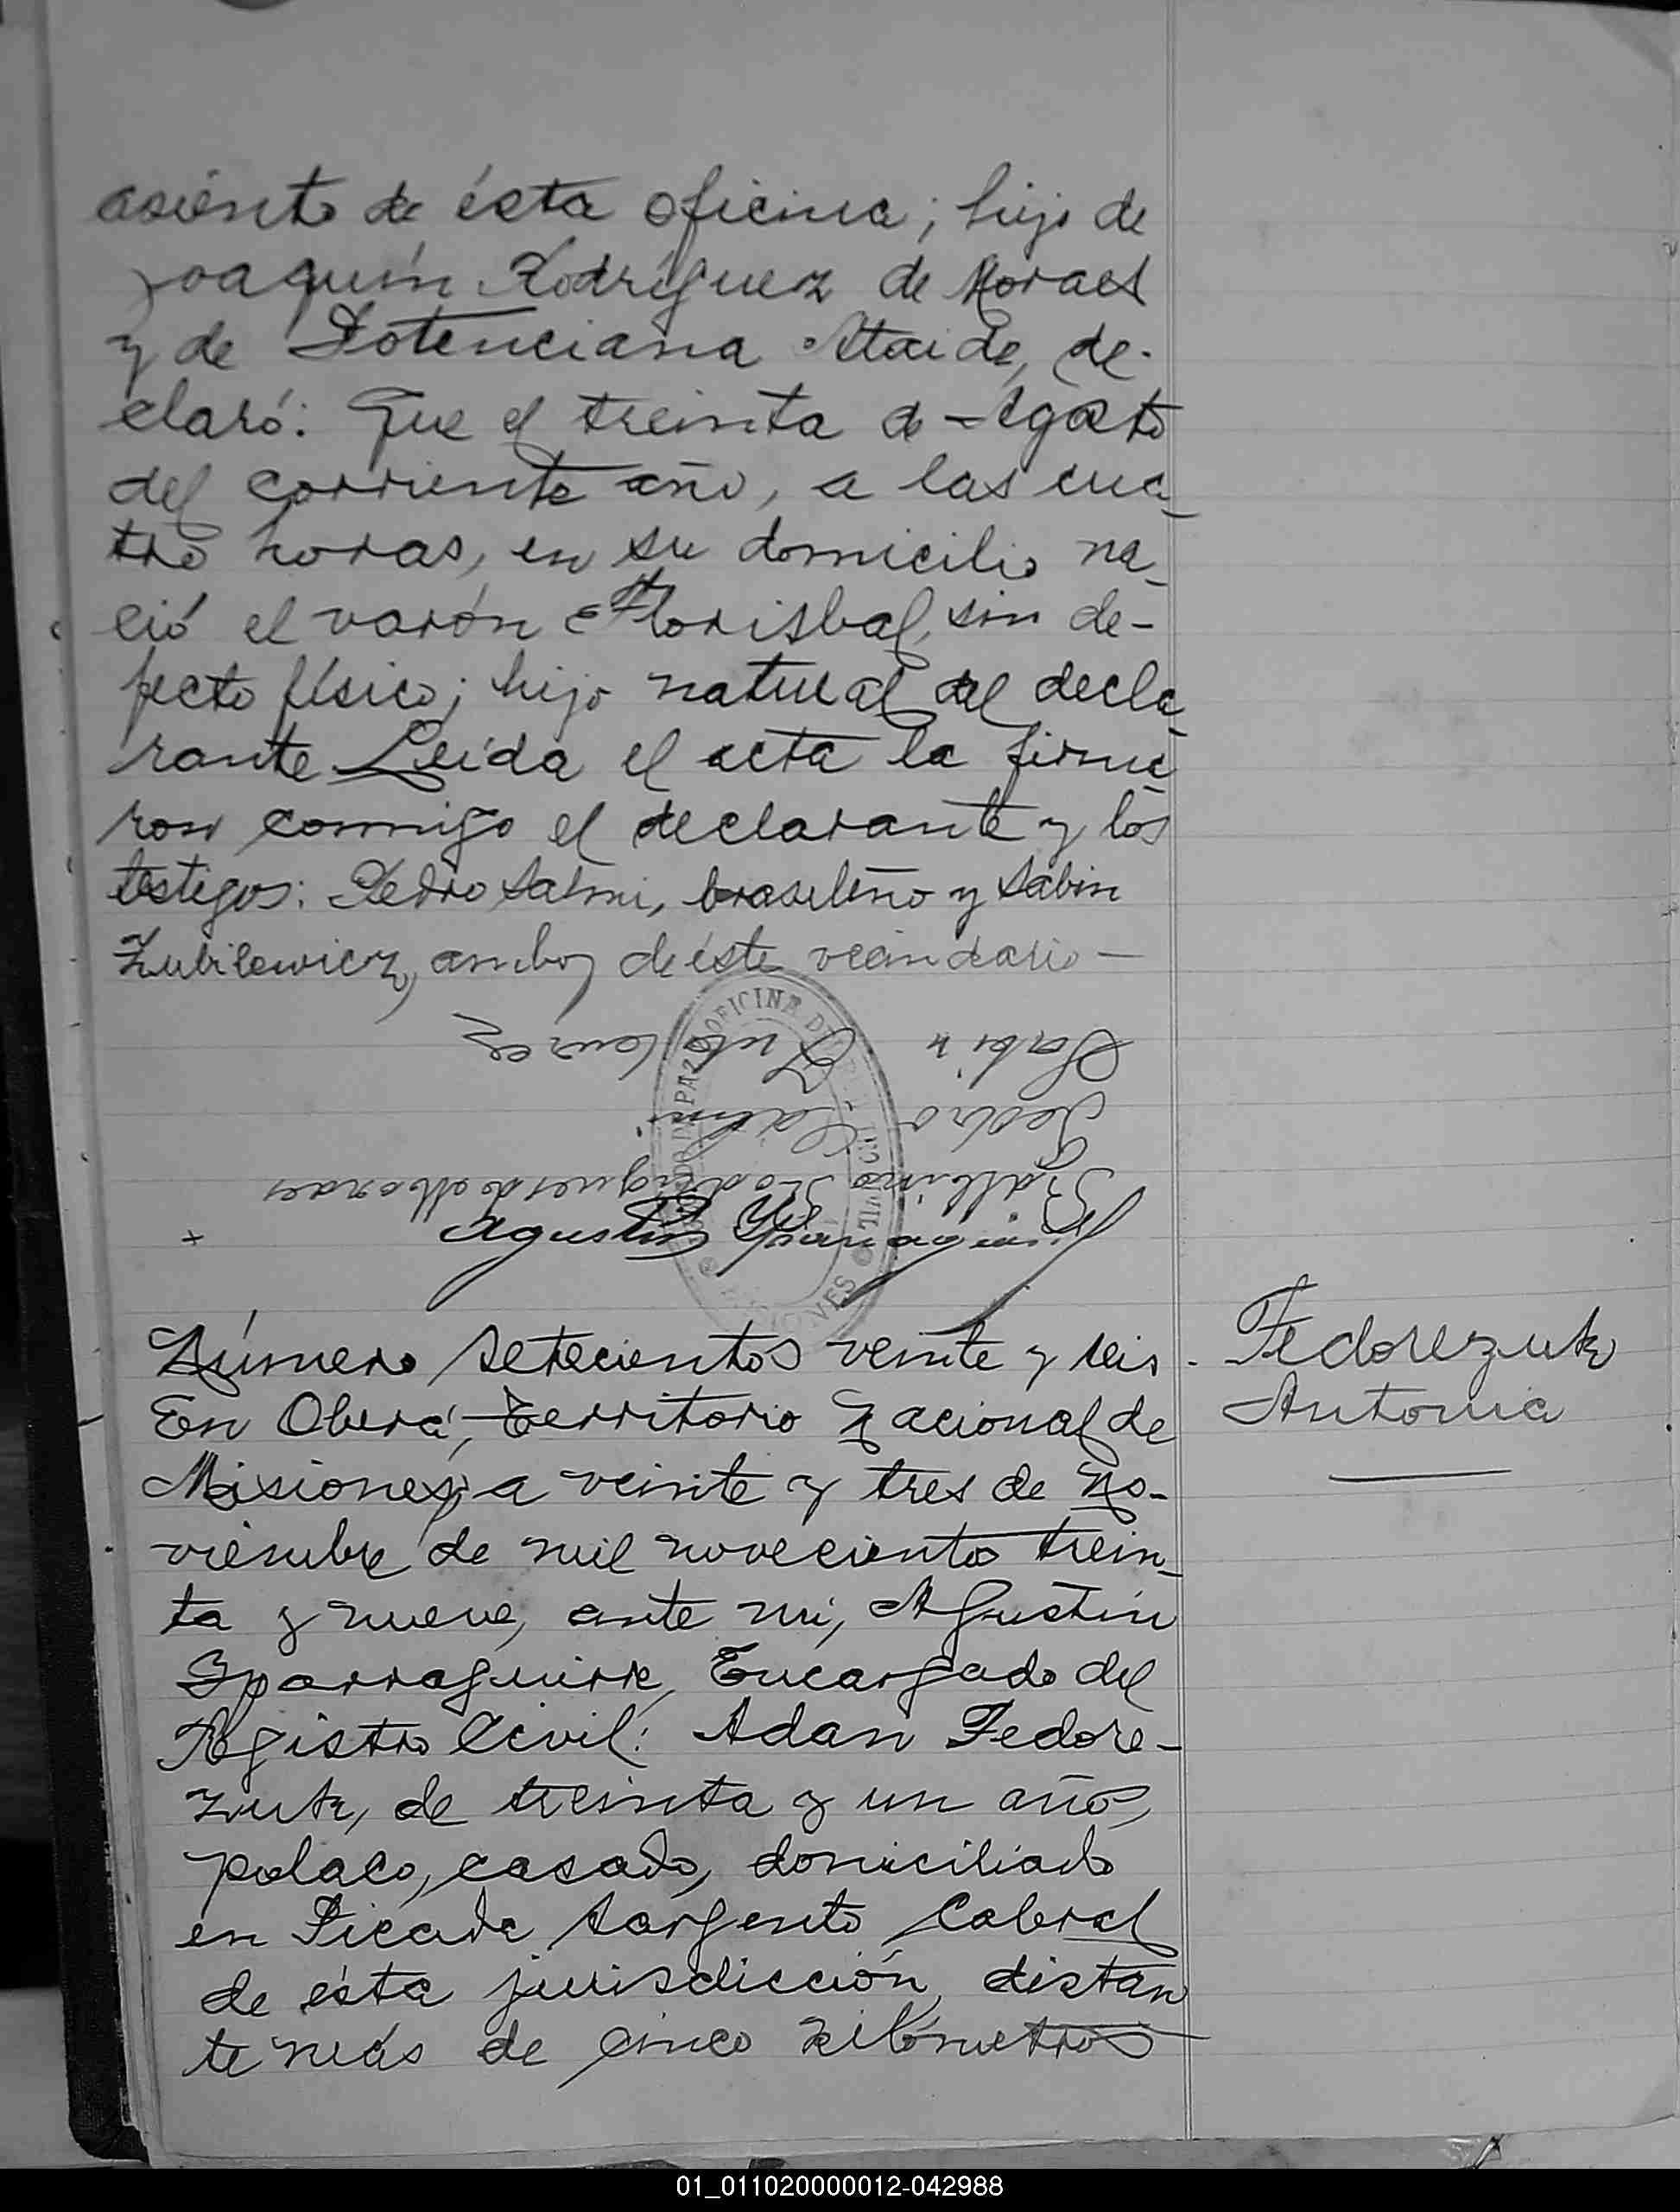 asiento de ésta oficina; hijo de
Joaquín Rodríguez de Moraes
y de Potenciana Ataide, de-
claró: Que el treinta de Agosto
del corriente año, a las cua-
tro horas, en su domicilio na-
ció el varón Florisbal, sin de-
fecto físico; hijo natural del decla-
rante Leída el acta la firma-
ron conmigo el declarante y los
testigos: Pedro Salmi, brasileño y Sabin
Zubilewicz, ambos de éste vecindario—
Sabin
Pedro Salmi
Rodriguez de Moraes
Agustin Yparraguirre
OFICINA DE CIVIL
JUZGADO DE PAZ
MISIONES
Número setecientos veinte y seis -
En Oberá, Territorio Nacional de
Misiones, a veinte y tres de No-
viembre de mil novecientos trein-
ta y nueve, ante mi, Agustín
Yparraguirre, Encargado del
Registro Civil: Adan Fedore-
zutz, de treinta y un años,
polaco, casado, domiciliado
en Picada Sargento Cabral
de ésta jurisdicción, distan
te más de cinco kilómetros
Fedorezutz
Antonia
01_011020000012-042988